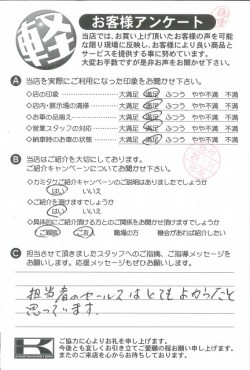 軽
お客様アンケート
当店では、お買い上げ頂いたお客様の声を可能
な限り現場に反映し、お客様により良い商品と
サービスを提供する事に努めています。
大変お手数ですが是非お声をお聞かせ下さい。
A 当店を実際にご利用になった印象をお聞かせ下さい。
◇店の印象 大満足 満足 ふつう やや不満 不満
◇店内・展示場の清掃 大満足 満足 ふつう やや不満 不満
◇お車の品揃え 大満足 満足 ふつう やや不満 不満
◇営業スタッフの対応 大満足 満足 ふつう やや不満 不満
◇納車時のお車の状態 大満足 満足 ふつう やや不満 不満
B 当店はご紹介を大切にしております。
ご紹介キャンペーンについてお聞かせ下さい。
◇カミタケご紹介キャンペーンのご説明はありましたでしょうか
はい いいえ
◇ご紹介を頂けますでしょうか
はい いいえ
◇具体的にご紹介頂ける方とのご関係をお聞かせ頂けますでしょうか
ご親戚 ご友人 職場の方 機会があれば紹介したい
C 担当させて頂きましたスタッフへのご指摘、ご指導メッセージを
お願いします。応援メッセージもぜひお願いします。
担当者のセールスはとてもよかったと
思っています。
K
ご協力に心よりお礼を申し上げます。
今後とも宜しくお引き立てご愛顧の程お願い申し上げます。
またのご来店を心からお待ちしております。